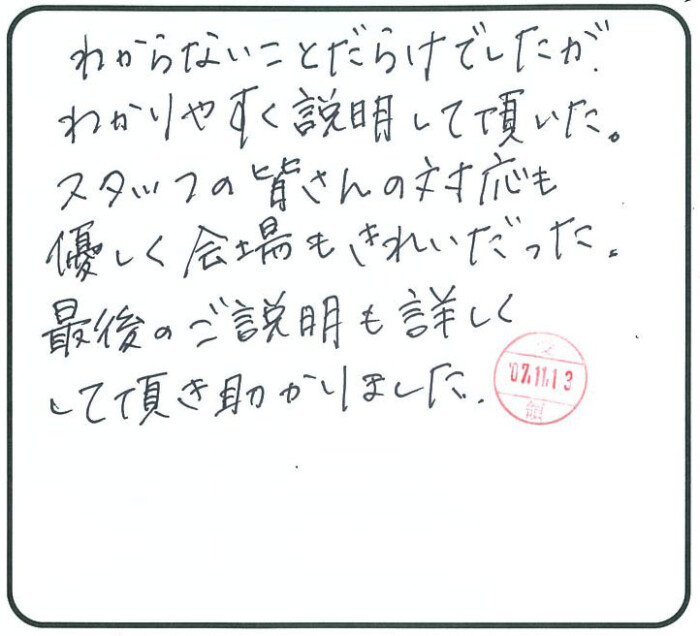 わからないことだらけでしたが、
わかりやすく説明して頂いた。
スタッフの皆さんの対応も
優しく会場もきれいだった。
最後のご説明も詳しく
して頂き助かりました。
受
'07.11.13
領